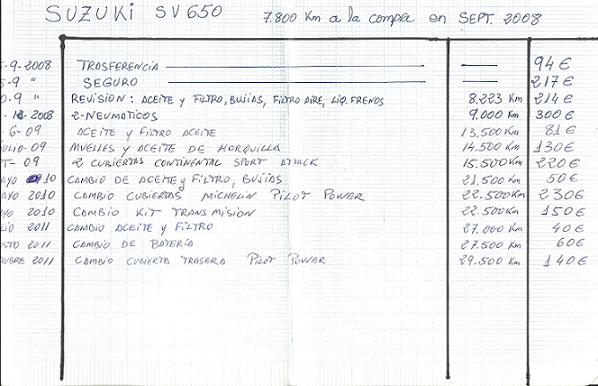 SUZUKI SV650 7.800 Km a la compra en SEPT. 2008
-9-2008 TRASFERENCIA 94€
-9 " SEGURO 217€
0-9 " REVISION: ACEITE y FILTRO, BUJIAS, FILTRO AIRE, LIQ. FRENOS 8.223 Km 214€
-2008 2-NEUMATICOS 9.000 Km 300€
-6-09 ACEITE y FILTRO ACEITE 13,500 Km 81€
ULIO-09 MUELLES y ACEITE DE HORQUILLA 14.500 Km 130€
T-09 2 CUBIERTAS CONTINENTAL SPORT ATTACK 15.500 Km 220€
AYO 2010 CAMBIO DE ACEITE y FILTRO, BUJIAS 21.500 Km 50€
AYO 2010 CAMBIO CUBIERTAS MICHELIN PILOT POWER 22.500 Km 230€
YO 2010 CAMBIO KIT TRANSMISION 22.500 Km 150€
LIO 2011 CAMBIO ACEITE y FILTRO 27.000 Km 40€
OSTO 2011 CAMBIO DE BATERIA 27.500 Km 60€
UBRE 2011 CAMBIO CUBIERTA TRASERA PILOT POWER 29.500 Km 140€